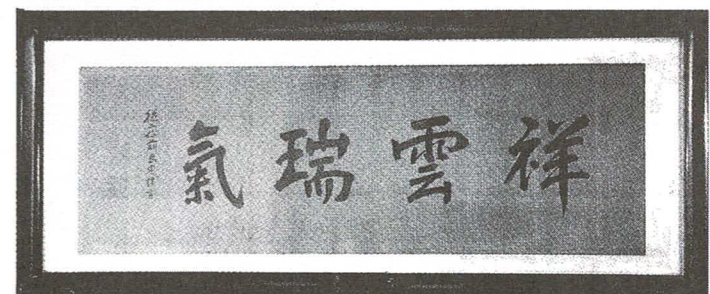 祥雲瑞氣